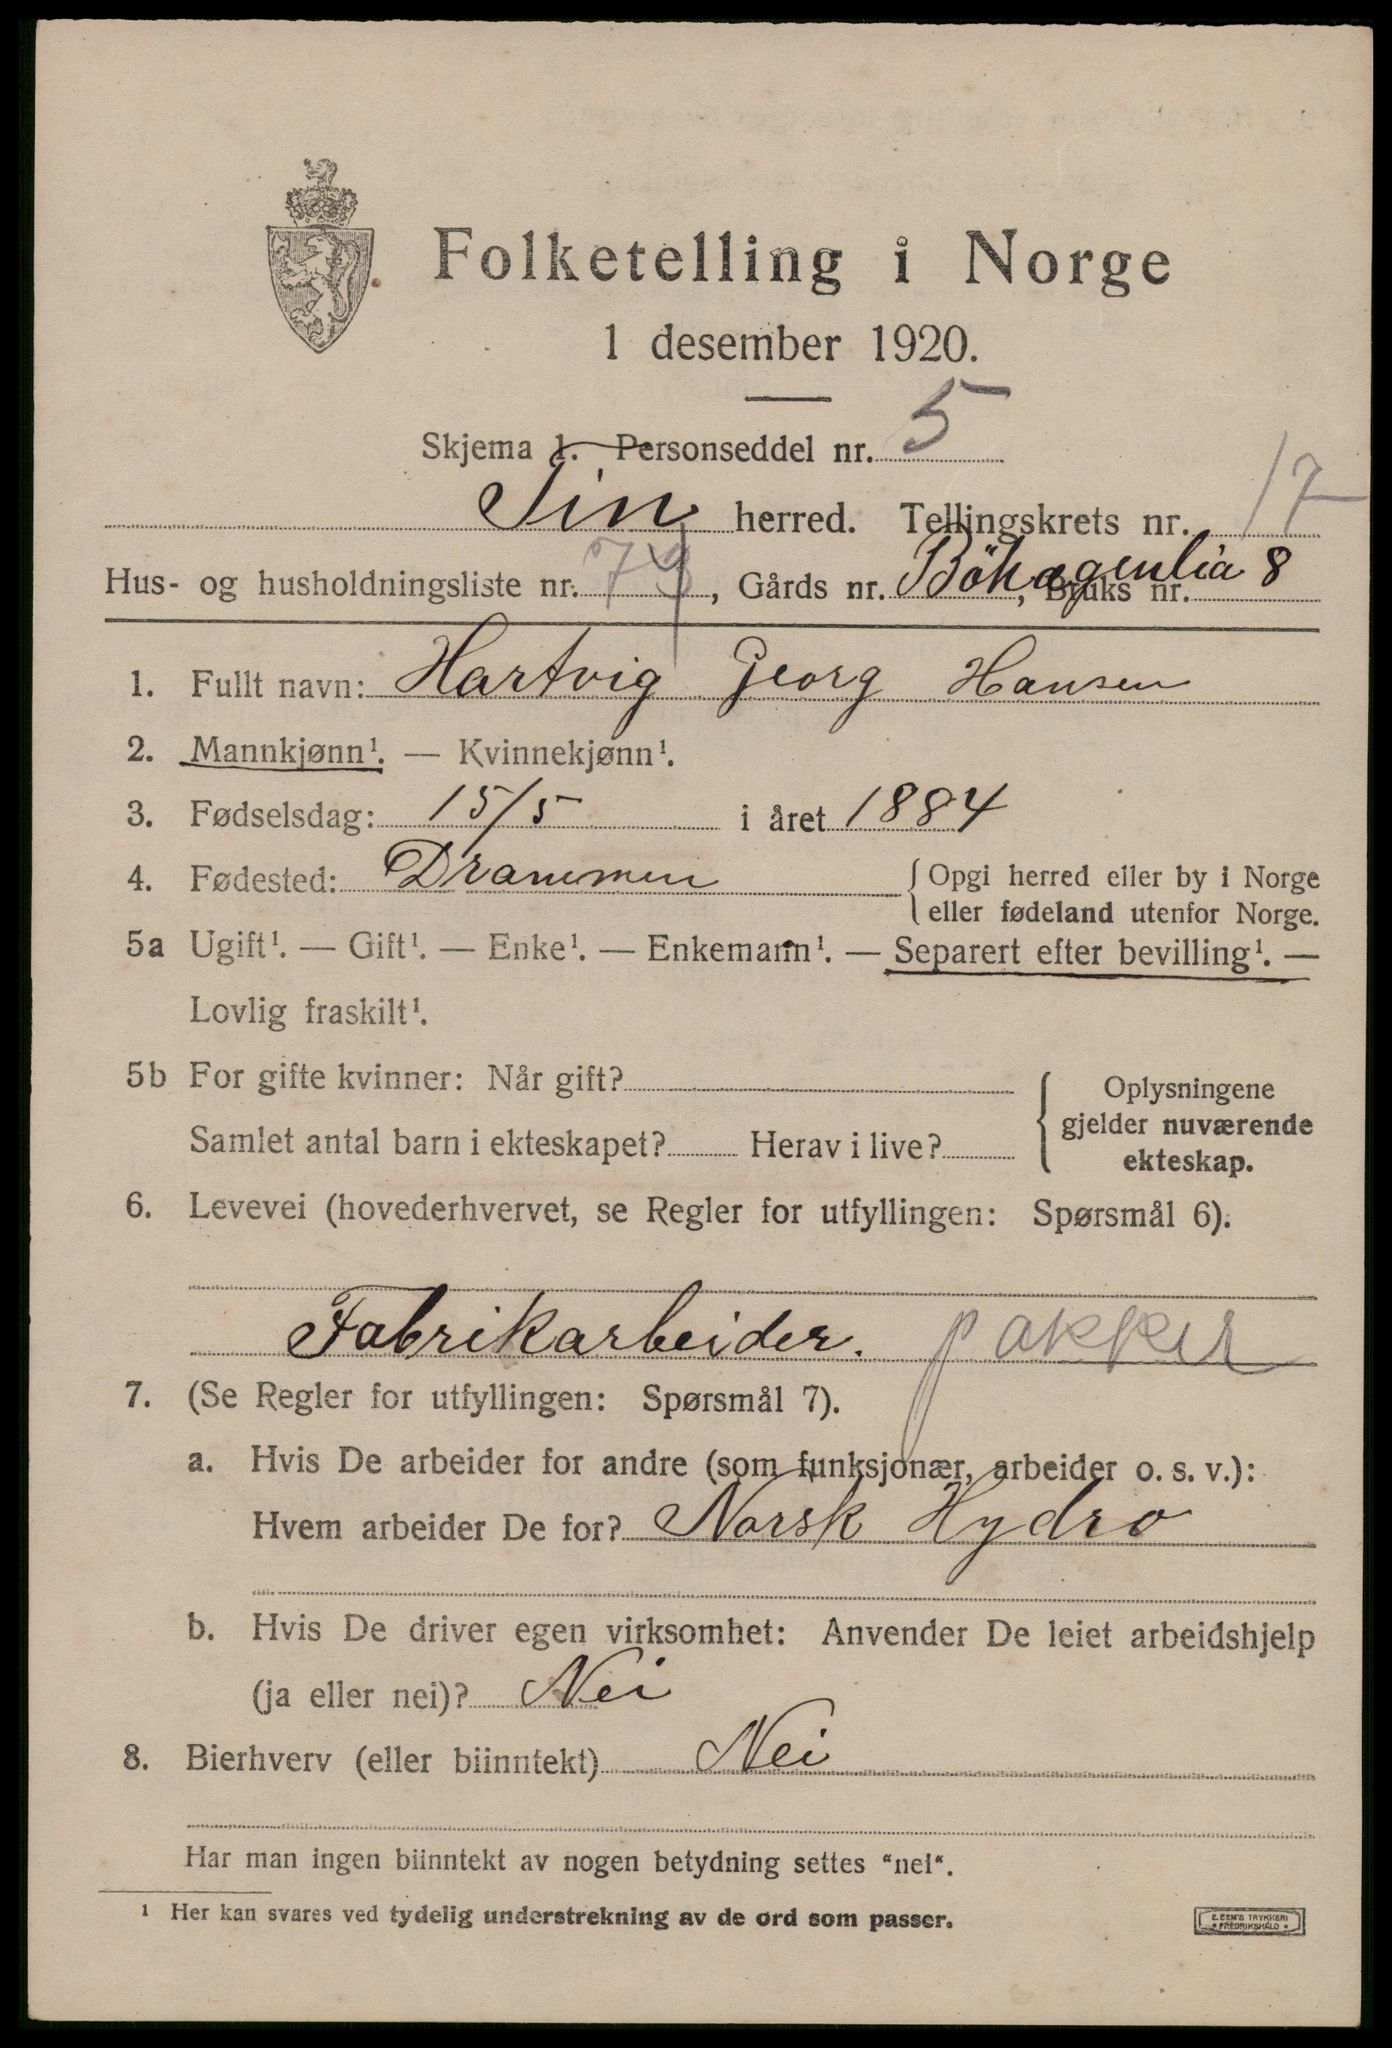 Folketelling i Norge
1 desember 1920.
Skjema 1. Personseddel nr. 5
Tin herred. Tellingskrets nr. 17
Hus- og husholdningsliste nr. 73, Gårds nr. Böhagenlia 8, Bruks nr.
1. Fullt navn: Hartvig Georg Hansen
2. Mannkjønn¹. — Kvinnekjønn¹.
3. Fødselsdag: 15/5 i året 1884
4. Fødested: Drammen { Opgi herred eller by i Norge
eller fødeland utenfor Norge.
5a Ugift¹. — Gift¹. — Enke¹. — Enkemann¹. — Separert efter bevilling¹. —
Lovlig fraskilt¹.
5b For gifte kvinner: Når gift?
Samlet antal barn i ekteskapet? Herav i live?
{ Oplysningene
gjelder nuværende
ekteskap.
6. Levevei (hovederhvervet, se Regler for utfyllingen: Spørsmål 6).
Fabrikarbeider. pakker
7. (Se Regler for utfyllingen: Spørsmål 7).
a. Hvis De arbeider for andre (som funksjonær, arbeider o. s. v.):
Hvem arbeider De for? Norsk Hydro
b. Hvis De driver egen virksomhet: Anvender De leiet arbeidshjelp
(ja eller nei)? Nei
8. Bierhverv (eller biinntekt) Nei
Har man ingen biinntekt av nogen betydning settes "nei".
¹ Her kan svares ved tydelig understrekning av de ord som passer.
E. SEM'S TRYKKERI
FREDRIKSHALD